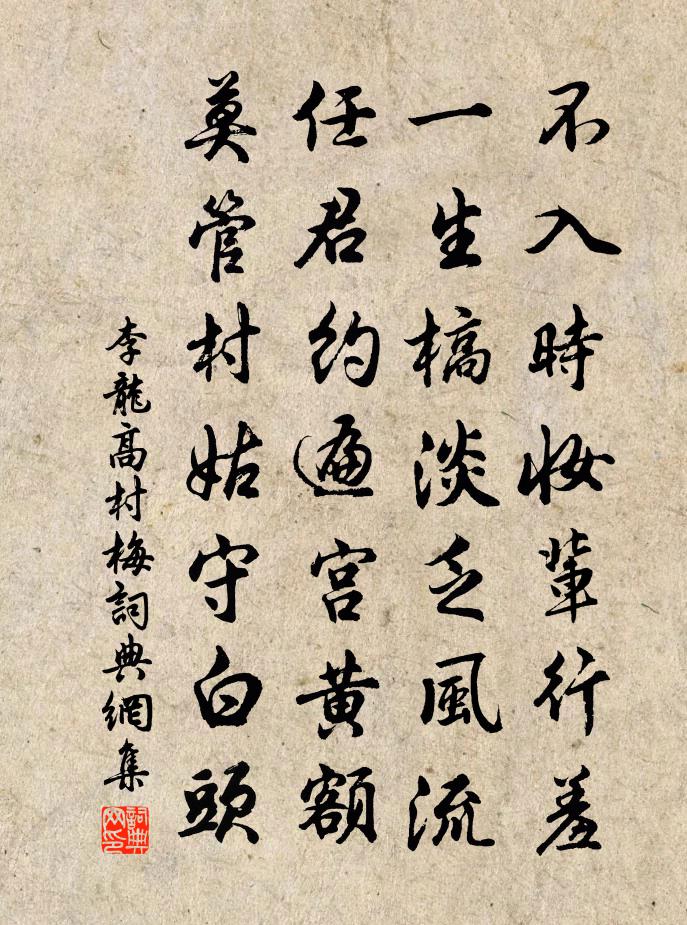 不入時妝輩行羞
一生槁淡乏風流
任君約遍宮黃額
莫管村姑守白頭
李龍高村梅詞典網集
詞典网印